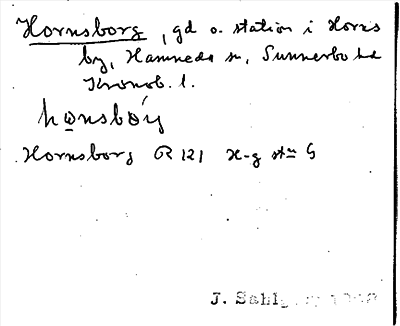 Hornsborg, gd o. station i Horns
by, Hamneda sn, Sunnerbo hd
Kronob. l.
Hornsborg R 121 X-g stn G
J. Sahlg